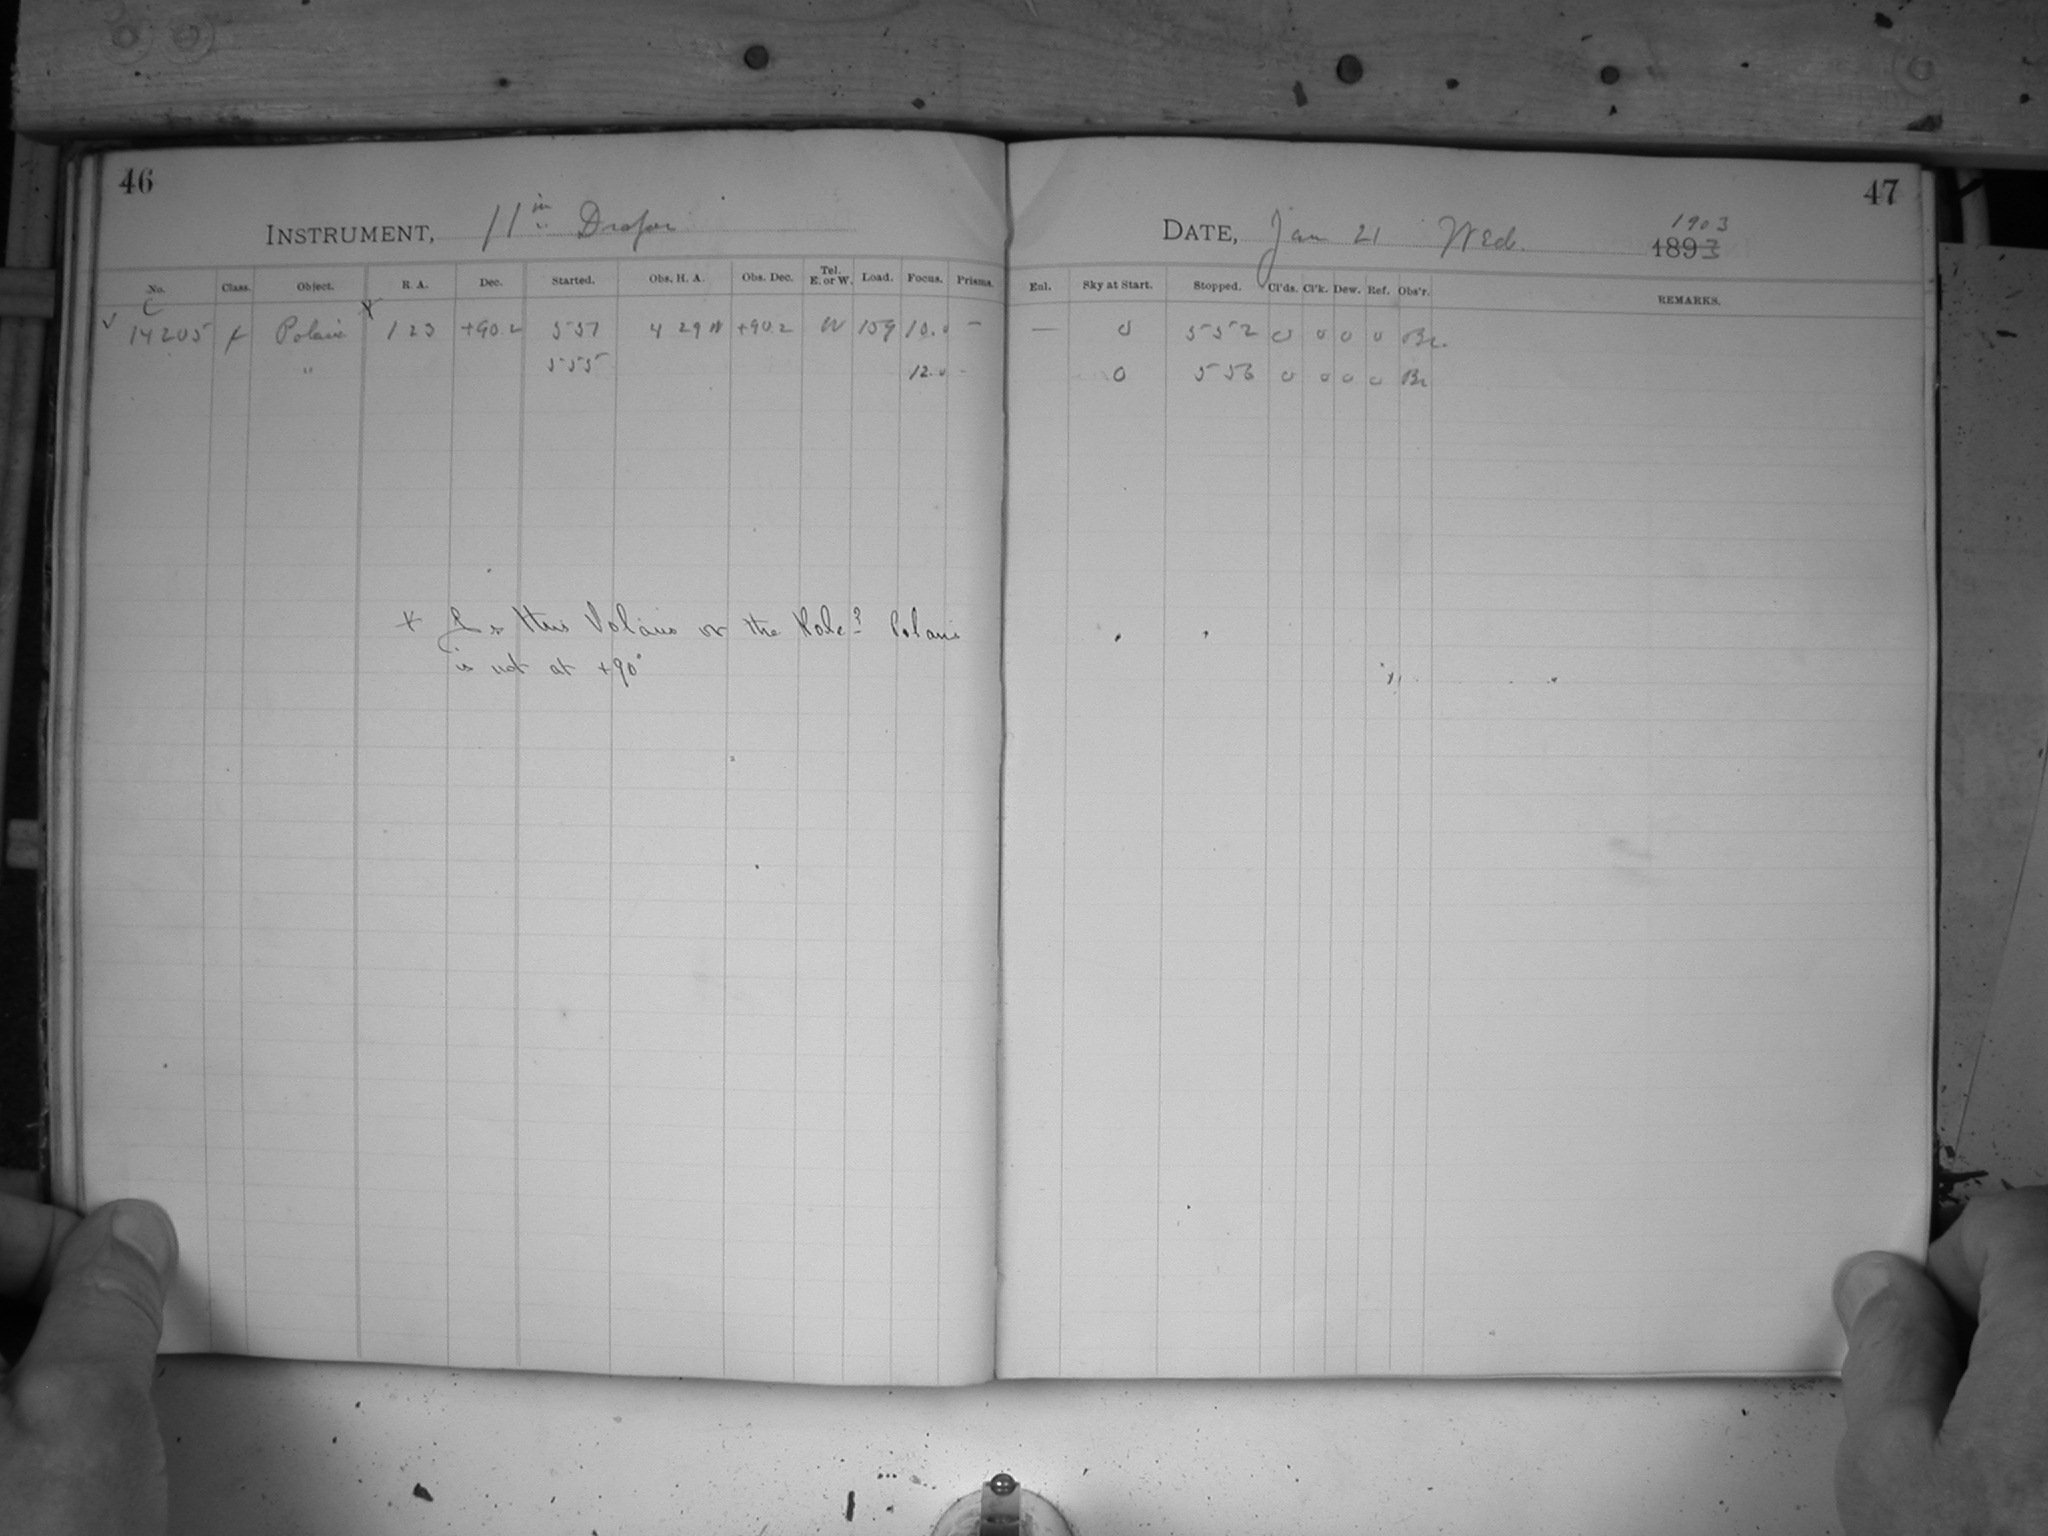 46
INSTRUMENT, 11 in Draper
No. Class. Object. R. A. Dec. Started. Obs. H. A. Obs. Dec. Tel. E. or W. Load. Focus. Prisms.
C
√ 14205 f Polaris X 1 23 +90.2 551 4 29 W +90.2 W 159 10.0 –
" 555 12.0 -
* Is this Polaris or the Pole? Polaris
is not at +90°
47
DATE, Jan 21 Wed. 1903
1893
Enl. Sky at Start. Stopped. Cl'ds. Cl'k. Dew. Ref. Obs'r. REMARKS.
— 0 552 0 0 0 0 Br.
0 556 0 0 0 0 Br